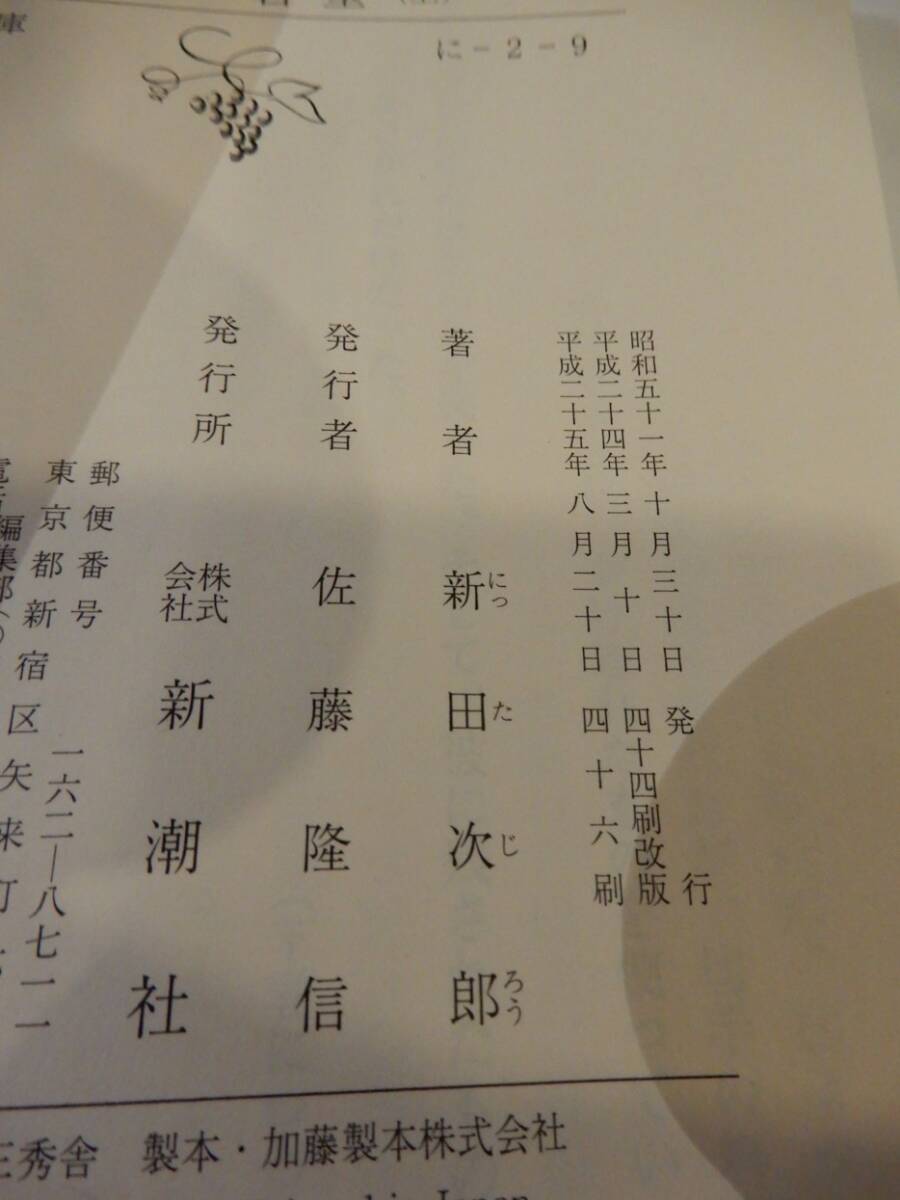 庫
に-2-9
昭和五十一年十月三十日発行
平成二十四年三月十日四十四刷改版
平成二十五年八月二十日四十六刷
著者 新田次郎
にったじろう
発行者 佐藤隆信
発行所 株式会社 新潮社
郵便番号 一六二―八七一一
東京都新宿区矢来町
編集部(〇
三秀舎 製本・加藤製本株式会社
Japan